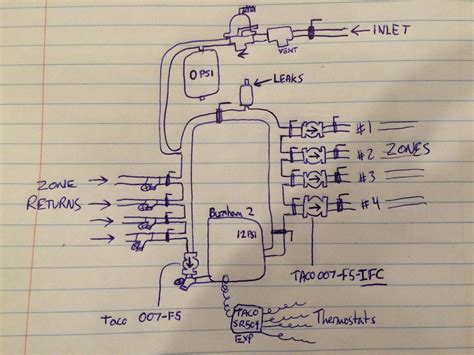 INLET
VENT
0 PSI
LEAKS
#1
#2 ZONES
#3
#4
ZONE
RETURNS
Burnham 2
12 PSI
TACO 007-F5-IFC
Taco 007-F5
TACO
SR504
EXP
Thermostats